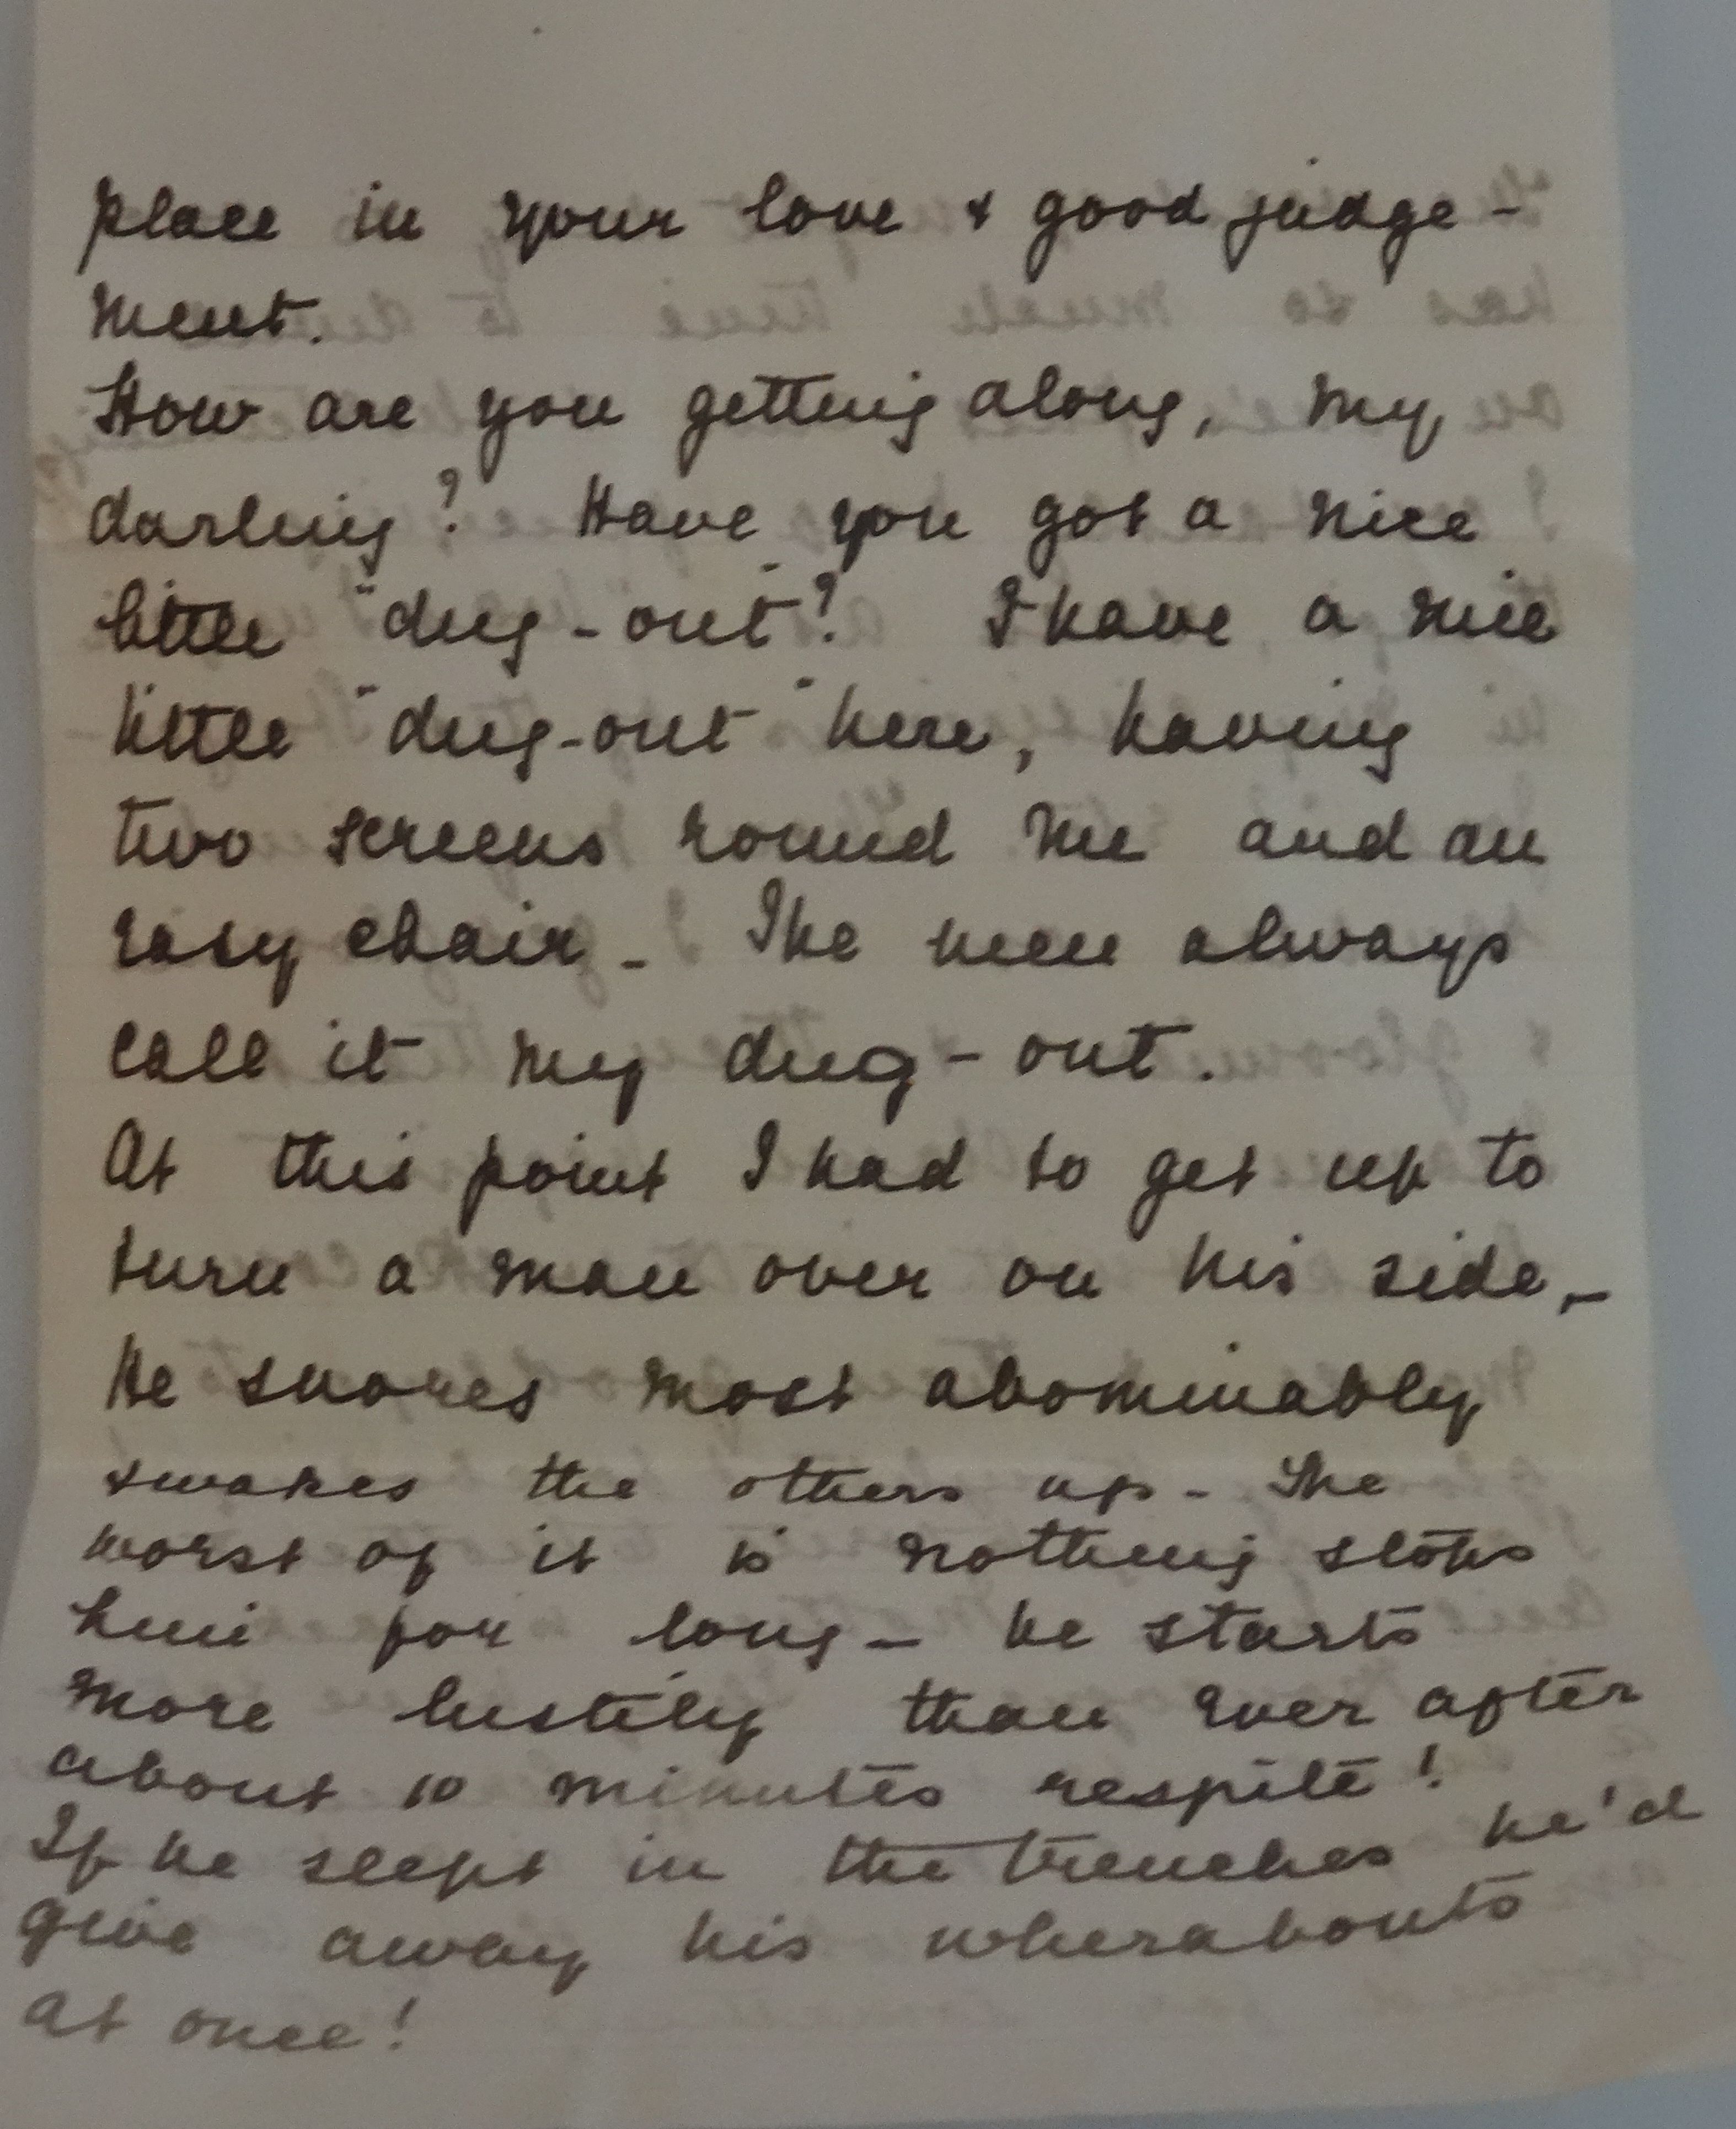 place in your love & good judge-
ment.
How are you getting along, my
darling? Have you got a nice
little "dug-out"? I have a nice
little "dug-out" here, having
two screens round me and an
easy chair - The men always
call it my dug-out.
At this point I had to get up to
turn a man over on his side, -
He snores most abominably
& wakes the others up - The
worst of it is nothing stops
him for long - he starts
more lustily than ever after
about 10 minutes respite!
If he slept in the trenches he'd
give away his wherabouts
at once!